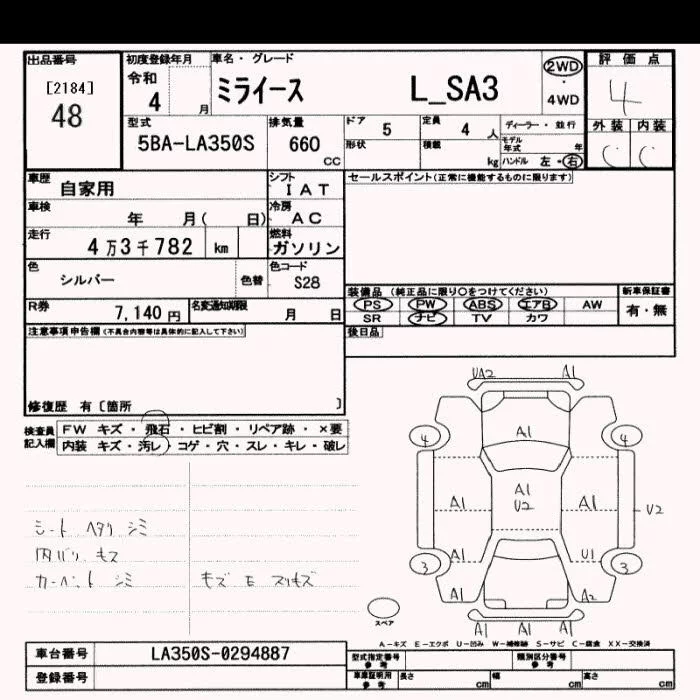 出品番号
[2184]
48
初度登録年月
令和
4 月
車名・グレード
ミライース L_SA3
2WD
・
4WD
評価点
4
外装 内装
C C
型式
5BA-LA350S
排気量
660
CC
ドア 5
形状
定員 4 人
積載 kg
ディーラー・並行
モデル年式 年
ハンドル 左・右
車歴
自家用
シフト
IAT
車検
年 月( 日)
冷房
AC
走行
4万3千782 km
燃料
ガソリン
色
シルバー
色替
色コード
S28
R券
7,140円
名変通知期限
月 日
セールスポイント(正常に機能するものに限ります)
装備品 (純正品に限り○をつけてください)
PS PW ABS エアB AW
SR ナビ TV カワ
新車保証書
有・無
後日品
注意事項申告欄(不具合内容等は具体的に記入して下さい)
修復歴 有〔箇所 〕
検査員記入欄
FW キズ・飛石・ヒビ割・リペア跡・×要
内装 キズ・汚レ・コゲ・穴・スレ・キレ・破レ
シート ヘタリ シミ
内バリ キズ
カーペット シミ
キズ E スリキズ
UA2 A1
4 4
A1
A1
U2
A1 A1 U2
A1 U1
3 3
A1 A2
A1 A1 A1
スペア
A-キズ E-エクボ U-凹み W-補修跡 S-サビ C-腐食 XX-交換済
車台番号
LA350S-0294887
登録番号
型式指定番号
参考
類別区分番号
参考
車庫証明用
参考
長さ cm
幅 cm
高さ cm